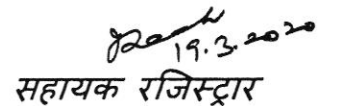 19.3.2020
सहायक रजिस्ट्रार